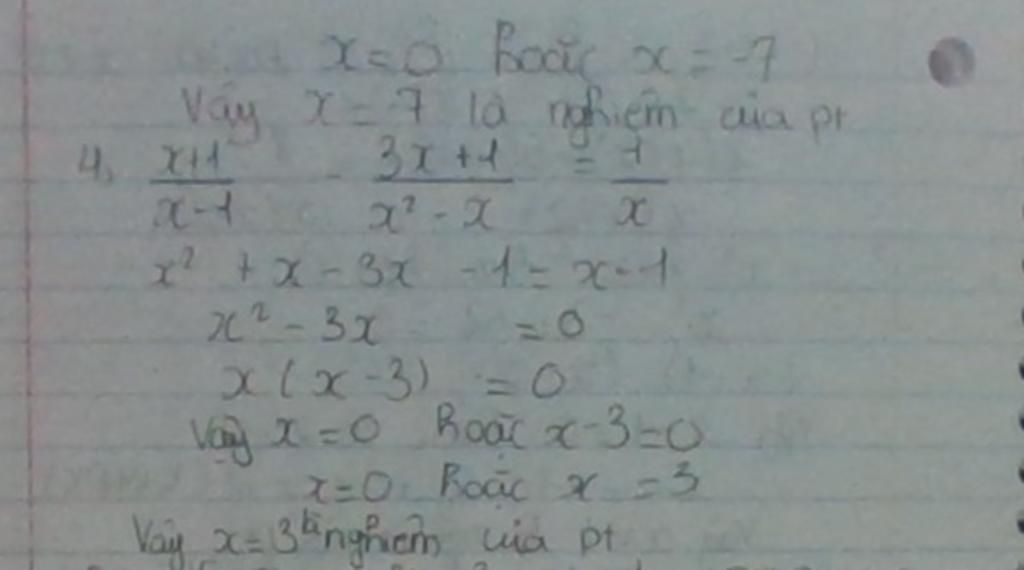 x = 0 hoặc x = -7
Vậy x = -7 là nghiệm của pt
4, \frac{x+1}{x-1} - \frac{3x+1}{x² - x} = \frac{1}{x}
x² + x - 3x - 1 = x - 1
x² - 3x = 0
x ( x - 3 ) = 0
Vậy x = 0 hoặc x - 3 = 0
x = 0 hoặc x = 3
Vậy x = 3 là nghiệm của pt